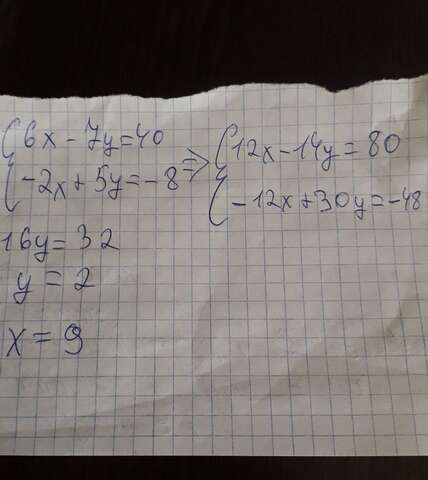 {6x-7y=40 => {12x-14y=80
{-2x+5y=-8 {-12x+30y=-48
16y=32
y=2
x=9